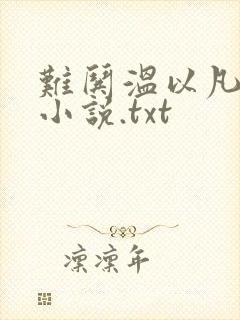 難鬨溫以凡
小說.txt
凜凜年